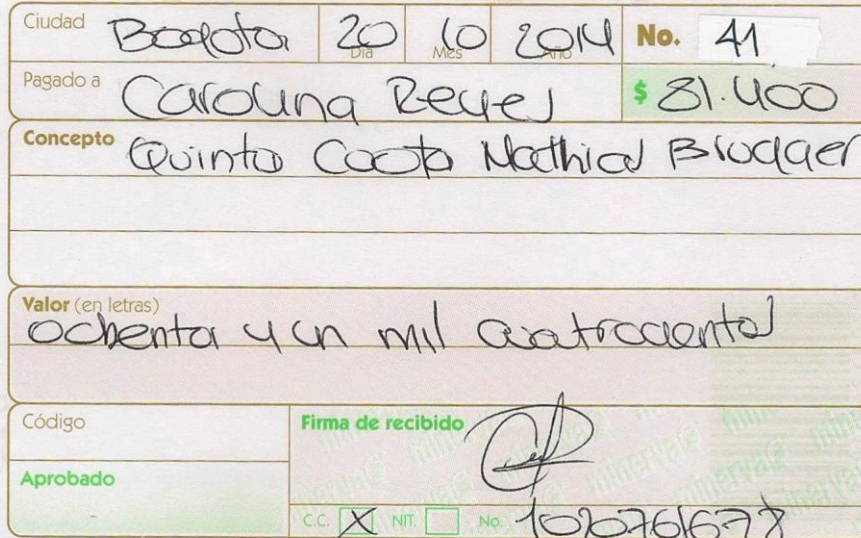 Ciudad Bogota 20 Día 10 Mes 2014 Año No. 41
Pagado a Carolina Reyes $ 81.400
Concepto Quinta Cuota Mathias Brugger
Valor (en letras)
ochenta y un mil cuatrocientos
Código Firma de recibido
Aprobado
C.C. X NIT. No. 1020761678
minerva